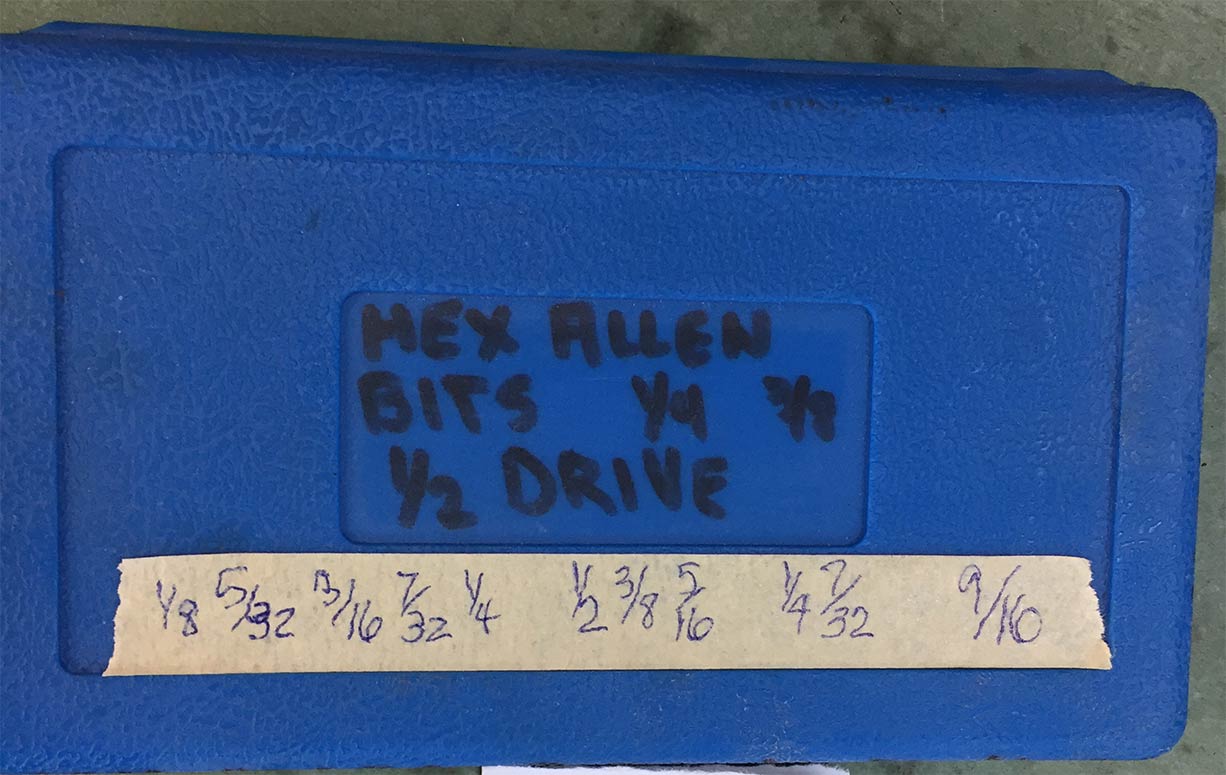 HEX ALLEN
BITS 1/4 3/8
1/2 DRIVE
1/8 5/32 3/16 7/32 1/4 1/2 3/8 5/16 1/4 7/32 9/16